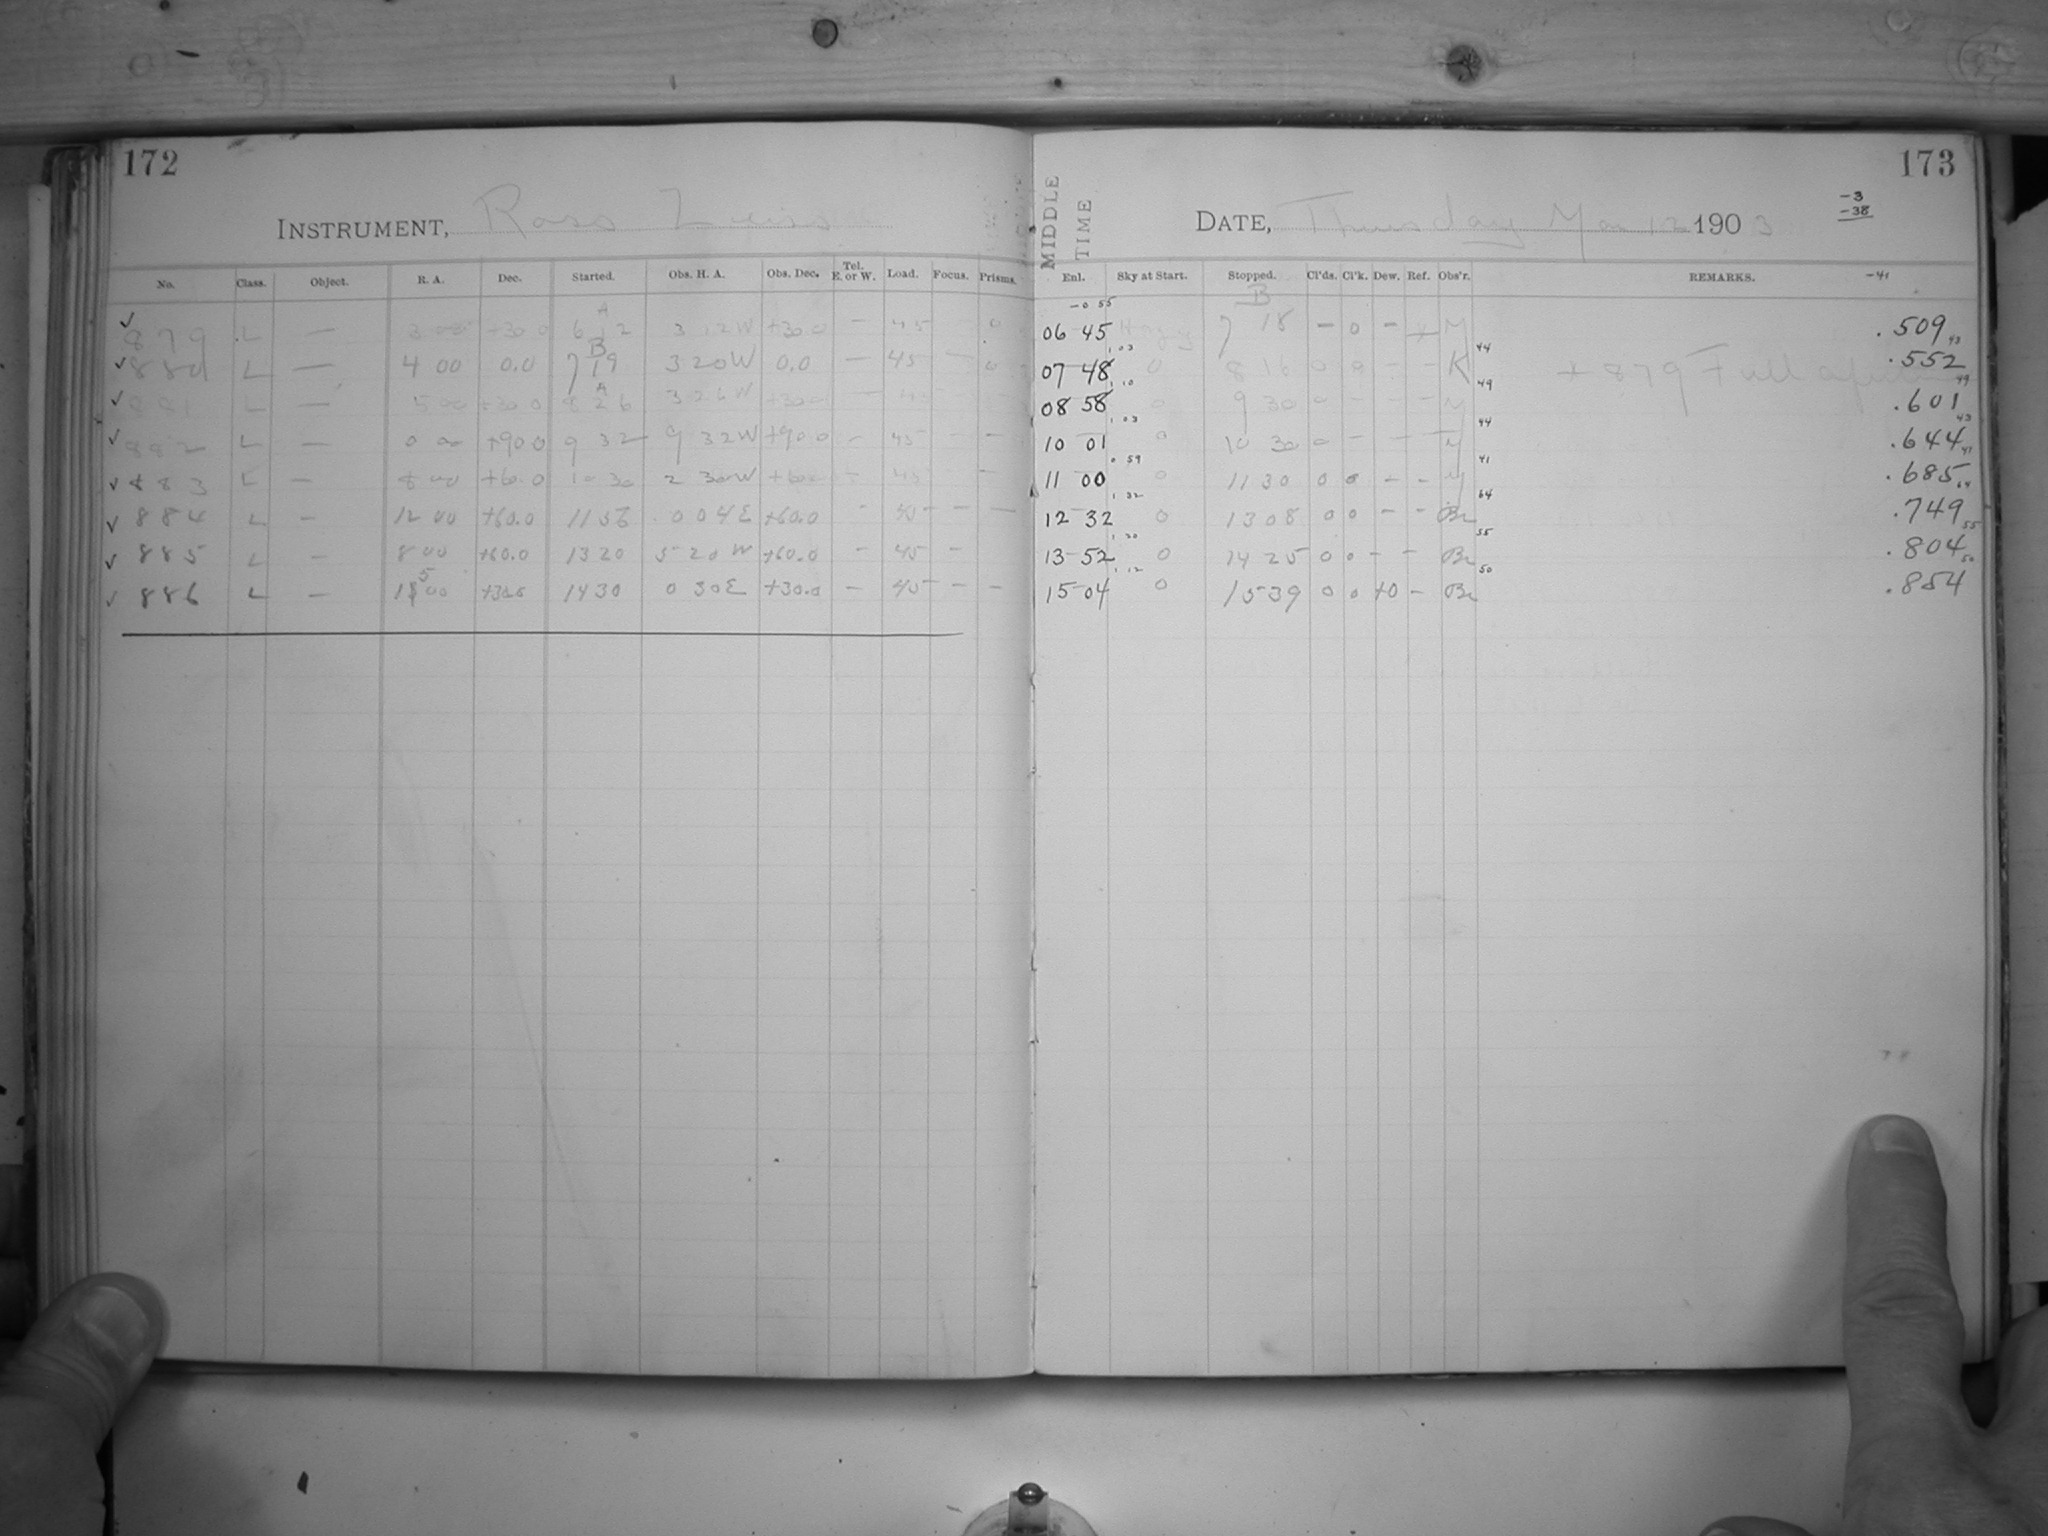 172
INSTRUMENT, Ross Lens
No. Class. Object. R. A. Dec. Started. Obs. H. A. Obs. Dec. Tel. E. or W. Load. Focus. Prisms.
✓ 879 L — 3 00 +30 0 A 6 12 3 12 W +30.0 — 45 0
✓ 880 L — 4 00 0.0 B 7 19 3 20 W 0.0 — 45 — 0
✓ 881 L — 5 00 +30 0 A 8 26 3 26 W +30.0 — 45 —
✓ 882 L — 0 00 +90 0 9 32 9 32 W +90.0 — 45 — —
✓ 883 L — 8 00 +60.0 10 30 2 30 W +60.0 — 45 —
✓ 884 L — 12 00 +60.0 11 56 0 04 E +60.0 - 45 — —
✓ 885 L — 8 00 +60.0 13 20 5 20 W +60.0 — 45 —
✓ 886 L — 15 00 +30.0 14 30 0 30 E +30.0 — 45 — —
173
MIDDLE TIME
DATE, Thursday Mar 12 1903
-3
-38
-41
Enl. Sky at Start. Stopped. Cl'ds. Cl'k. Dew. Ref. Obs'r. REMARKS.
-0 55 B
06 45 Hazy 7 18 — 0 — M .509 43
1 03 44
07 48 0 8 16 0 0 - - K + 879 Full .552 49
1 10 49
08 58 0 9 30 0 - - - M .601 43
1 03 44
10 01 0 10 30 0 - - - M .644 41
0 59 41
11 00 0 11 30 0 0 - - M .685 64
1 32 64
12 32 0 13 08 0 0 - - Br .749 55
1 20 55
13 52 0 14 25 0 0 - - Br .804 50
1 12 50
15 04 0 15 39 0 0 +0 - Br .854